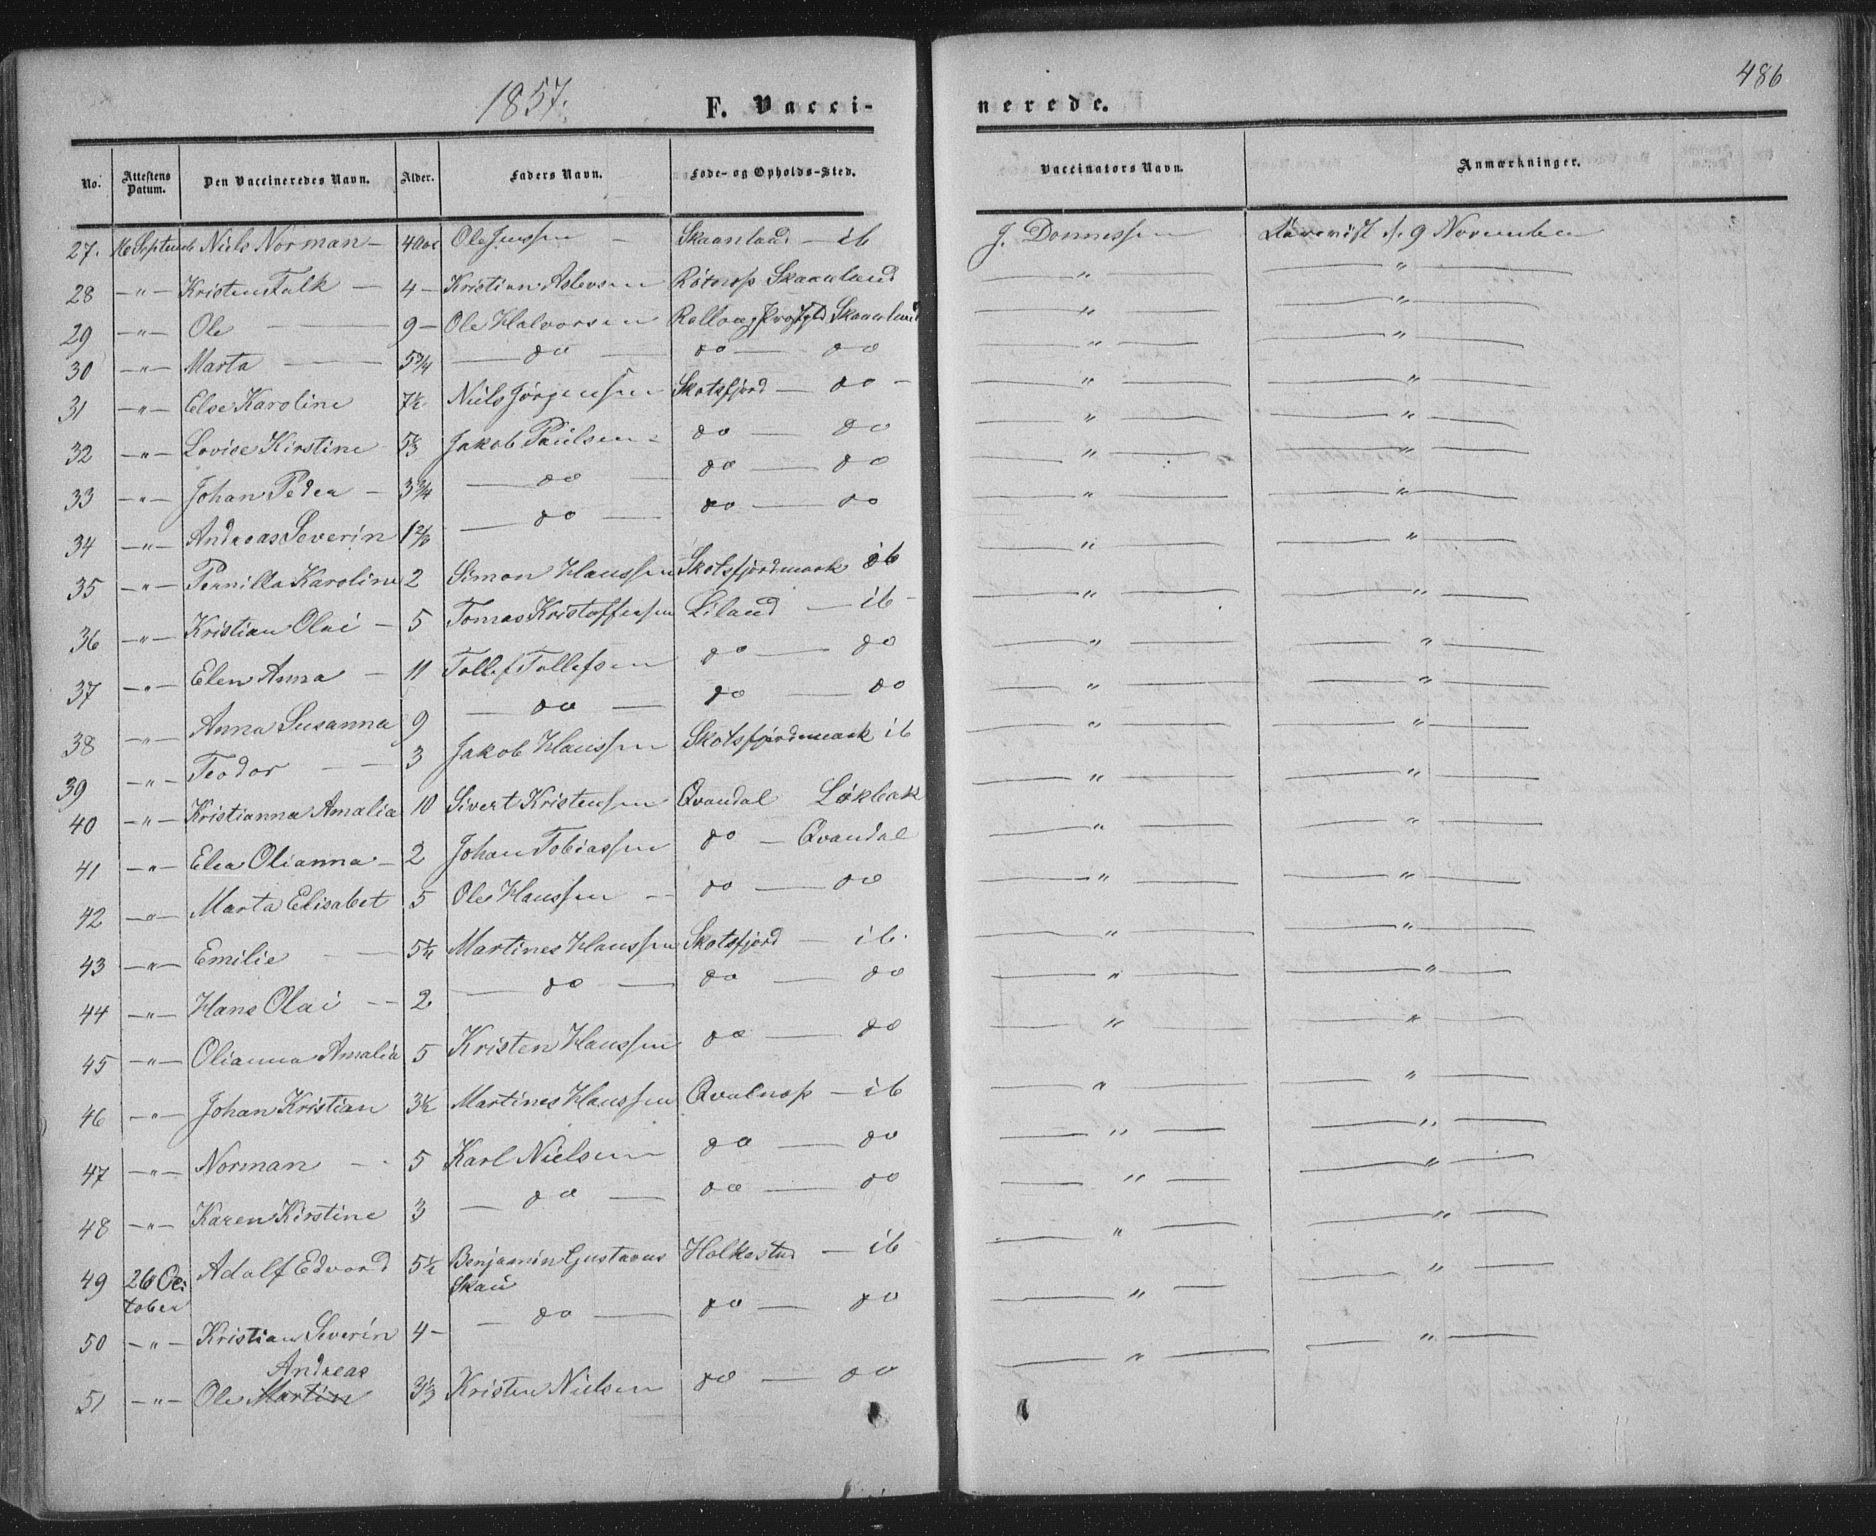 1857.
F. Vacci-
nerede.
486
No.
Attestens Datum.
Den Vaccineredes Navn.
Alder.
Faders Navn.
Føde- og Opholds-Sted.
Vaccinators Navn.
Anmærkninger.
27. 16 Septemb Niels Norman - 4 Ole Jenssen - Skaanland - ib J. Donnessen 9 November
28 -"- Kristen Falk - 4 - Kristian Aslevsen Skaanland -"- -"-
29 -"- Ole - 9 - Ole Halvorsen Skaanland -"- -"-
30 -"- Marta - 5 3/4 - do - do - do -"- -"-
31 -"- Else Karoline 7½ Niels Jørgenssen Skotsfjord - do - -"- -"-
32 -"- Lovise Kirstine 5⅓ Jakob Paulsen - do - do -"- -"-
33 -"- Johan Peder - 3 3/4 - do - do - do -"- -"-
34 -"- Andreas Severin - do - do - do -"- -"-
35 -"- Pernilla Karoline 2 Simon Hanssen Skotsfjordmark ib -"- -"-
36 -"- Kristian Olai - 5 Tomas Kristoffersen Liland - ib - -"- -"-
37 -"- Elen Anna - 11 Tollef Tollefsen do - do -"- -"-
38 -"- Anna Susanna 9 - do - do - do -"- -"-
39 -"- Teodor - 3 Jakob Hanssen Skotsfjordmark ib -"- -"-
40 -"- Kristianna Amalia 10 Sivert Kristensen Qvandal Løkbak -"- -"-
41 -"- Elea Olianna - 2 Johan Tobiassen do - Qvandal -"- -"-
42 -"- Marta Elisabet 5 Ole Hanssen - do - do -"- -"-
43 -"- Emilie - 5½ Martines Hanssen Skotsfjord - ib. -"- -"-
44 -"- Hans Olai - 2 - do - do - do -"- -"-
45 -"- Olianna Amalia 5 Kristen Hanssen do - do -"- -"-
46 -"- Johan Kristian 3½ Martines Hanssen - ib -"- -"-
47 -"- Norman - 5 Karl Nielsen do - do -"- -"-
48 -"- Karen Kirstine 3 - do - do - do -"- -"-
49 26 Oc Adolf Edvard 5½ Benjamin Gustavus Holkestad - ib -"- -"-
tober Skau
50 -"- Kristian Severin 4 - - do - do - do -"- -"-
Andreas
51 -"- Ole Martin 3⅓ Kristen Nielsen do - do -"- -"-